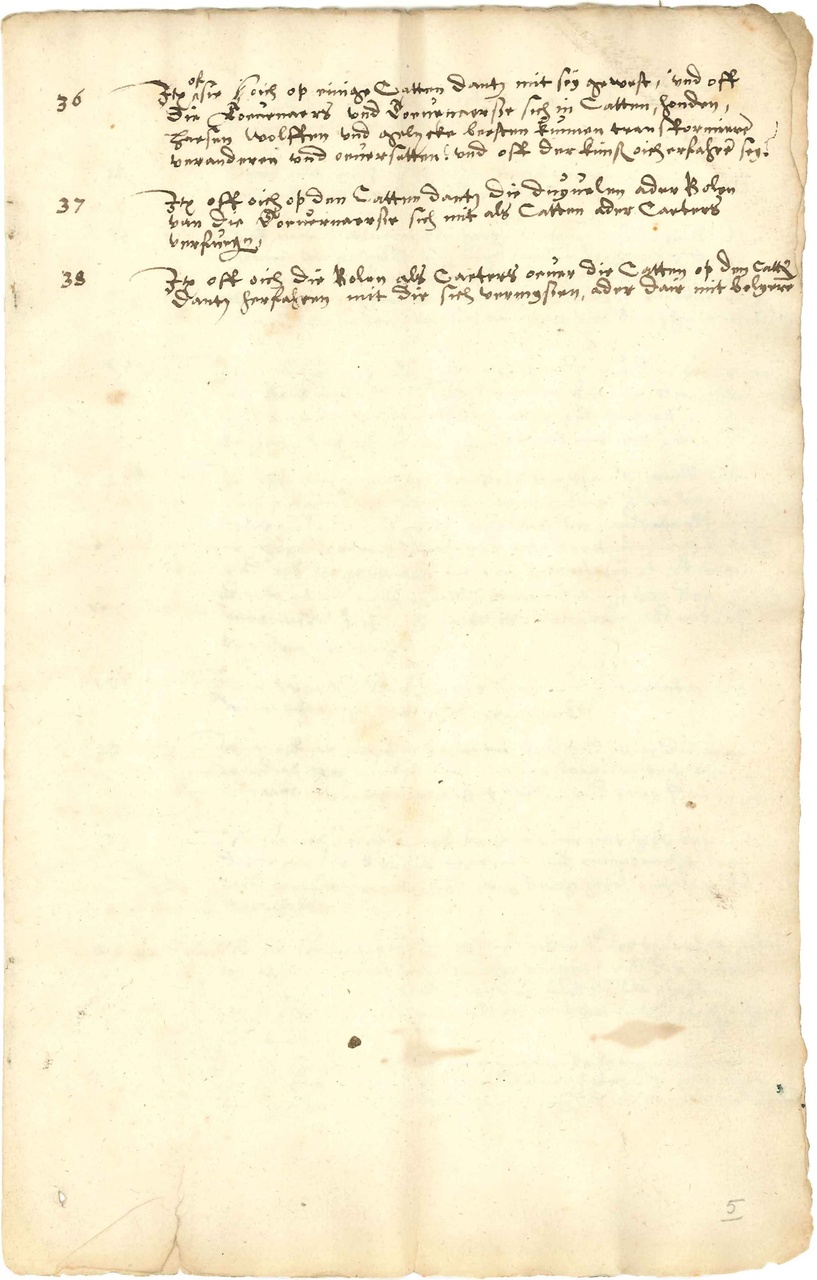 36 Itx off sie oich op einige Catten dantz mit sey gewest, und off
die Toeuernaers und Toeuernaersse sich in Catten, honden,
haesen wolffen und gelycke beesten kunnen transformieren
veranderen und oeuersetten, und off der kunst oich erfahren sey.
37 Itx off oich op den Catten dantz die duyuelen ader Bolen
van die Toeuernaersse sich mit als Catten ader Caeters
verfuegen,
38 Itx off oich die Bolen als Caeters oeuer die Catten op den Catten
Dantz herfahren mit die sich vermyssen, ader dair mit
5